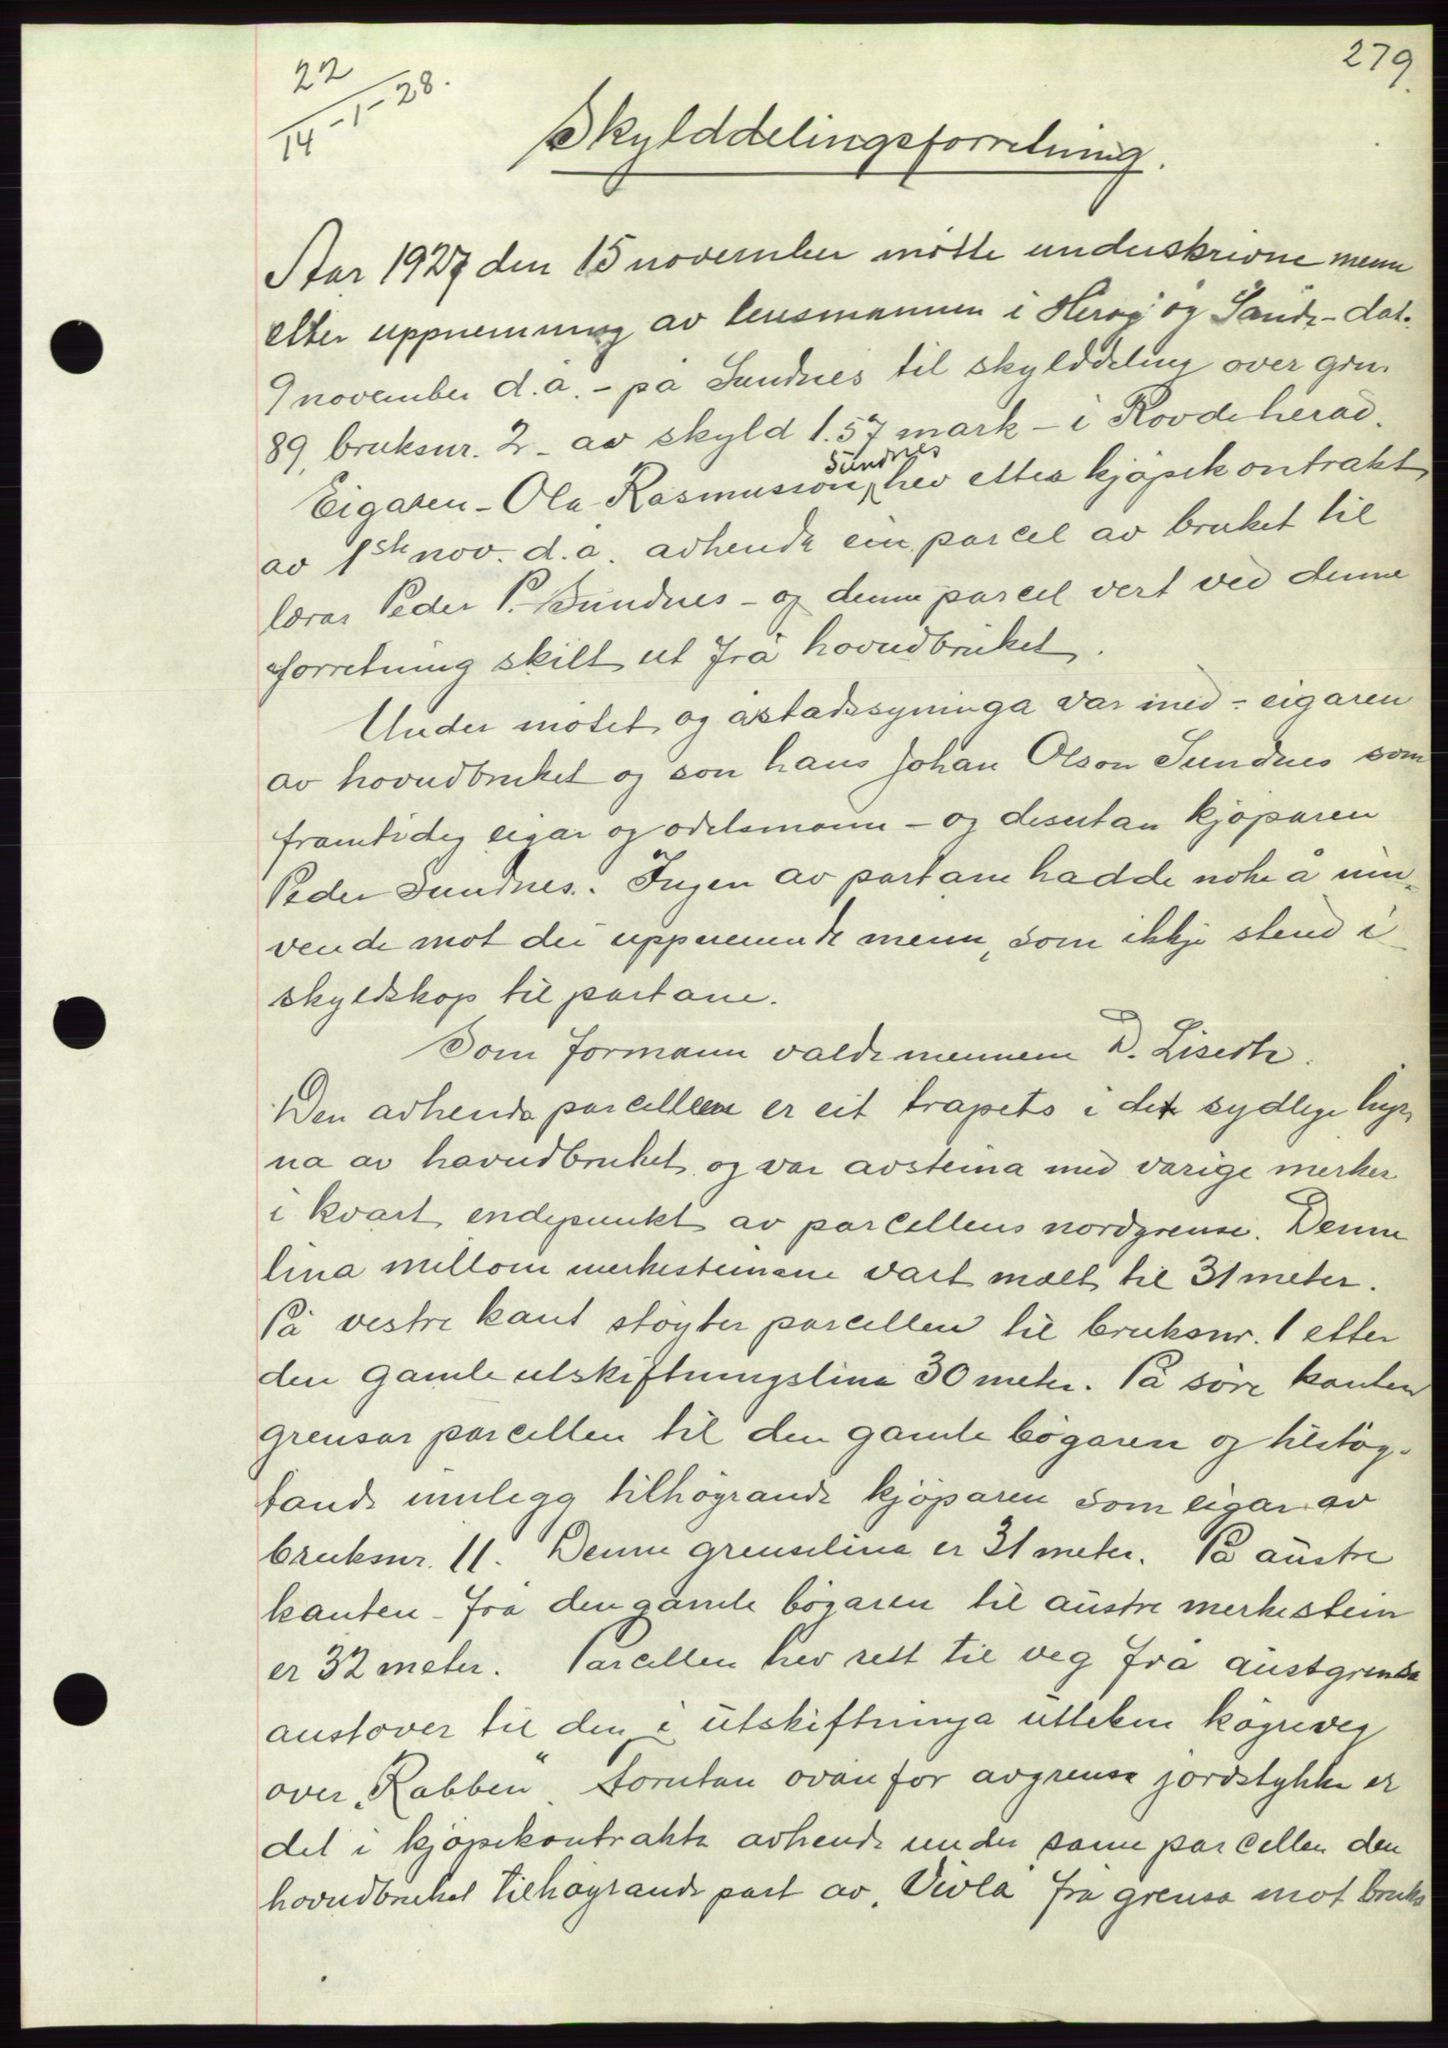 279.
22
14-1-28.
Skylddelingsforretning.
Aar 1927 den 15 november møtte underskrivne menn
etter uppnemning av lensmannen i Herøy og Sande - dat.
9 november d.å. - på Sundnes til skylddeling over grn.
89, bruksnr. 2 - av skyld 1.57 mark - i Rovde herad.
Sundnes
Eigaren - Ola Rasmusson, hev etter kjøpekontrakt
av 1ste nov. d.å. avhende ein parcel av bruket til
lærar Peder P. Sundnes - og denne parcel vert ved denne
forretning skilt ut frå hovudbruket.
Under møtet og åstadssyninga var med - eigaren
av hovudbruket og son hans Johan Olson Sundnes som
framtidig eigar og odelsmann - og desutan kjøparen
Peder Sundnes. Ingen av partane hadde noke å inn-
vende mot dei uppnemnde menn, som ikkje stend i
skyldskap til partane.
Som formann valde mennene D. Liseth.
Den avhende parcellen er eit trapets i det sydlige hyr-
na av hovudbruket og var avsteina med varige merker
i kvart endepunkt av parcellens nordgrense. Denne
lina millom merkesteinane vart mælt til 31 meter.
På vestre kant støyter parcellen til bruksnr. 1 etter
den gamle utskiftningslina 30 meter. På søre kanten
grensar parcellen til den gamle bøgaren og tilstøy-
tande innlegg tilhøyrande kjøparen som eigar av
bruksnr. 11. Denne grenselina er 31 meter. På austre
kanten - frå den gamle bøgaren til austre merkestein
er 32 meter. Parcellen hev rett til veg frå austgrensa
austover til den i utskiftninga uttekne køyreveg
over "Rabben". Forutan ovanfor avgrensa jordstykke er
det i kjøpekontrakta avhende under same parcellen den
hovudbruket tilhøyrande part av "Vivla" frå grensa mot bruks